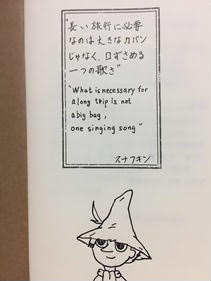 "長い旅行に必要
なのは大きなカバン
じゃなく、口ずさめる
一つの歌さ"
"What is necessary for
a long trip is not
a big bag,
one singing song"
スナフキン